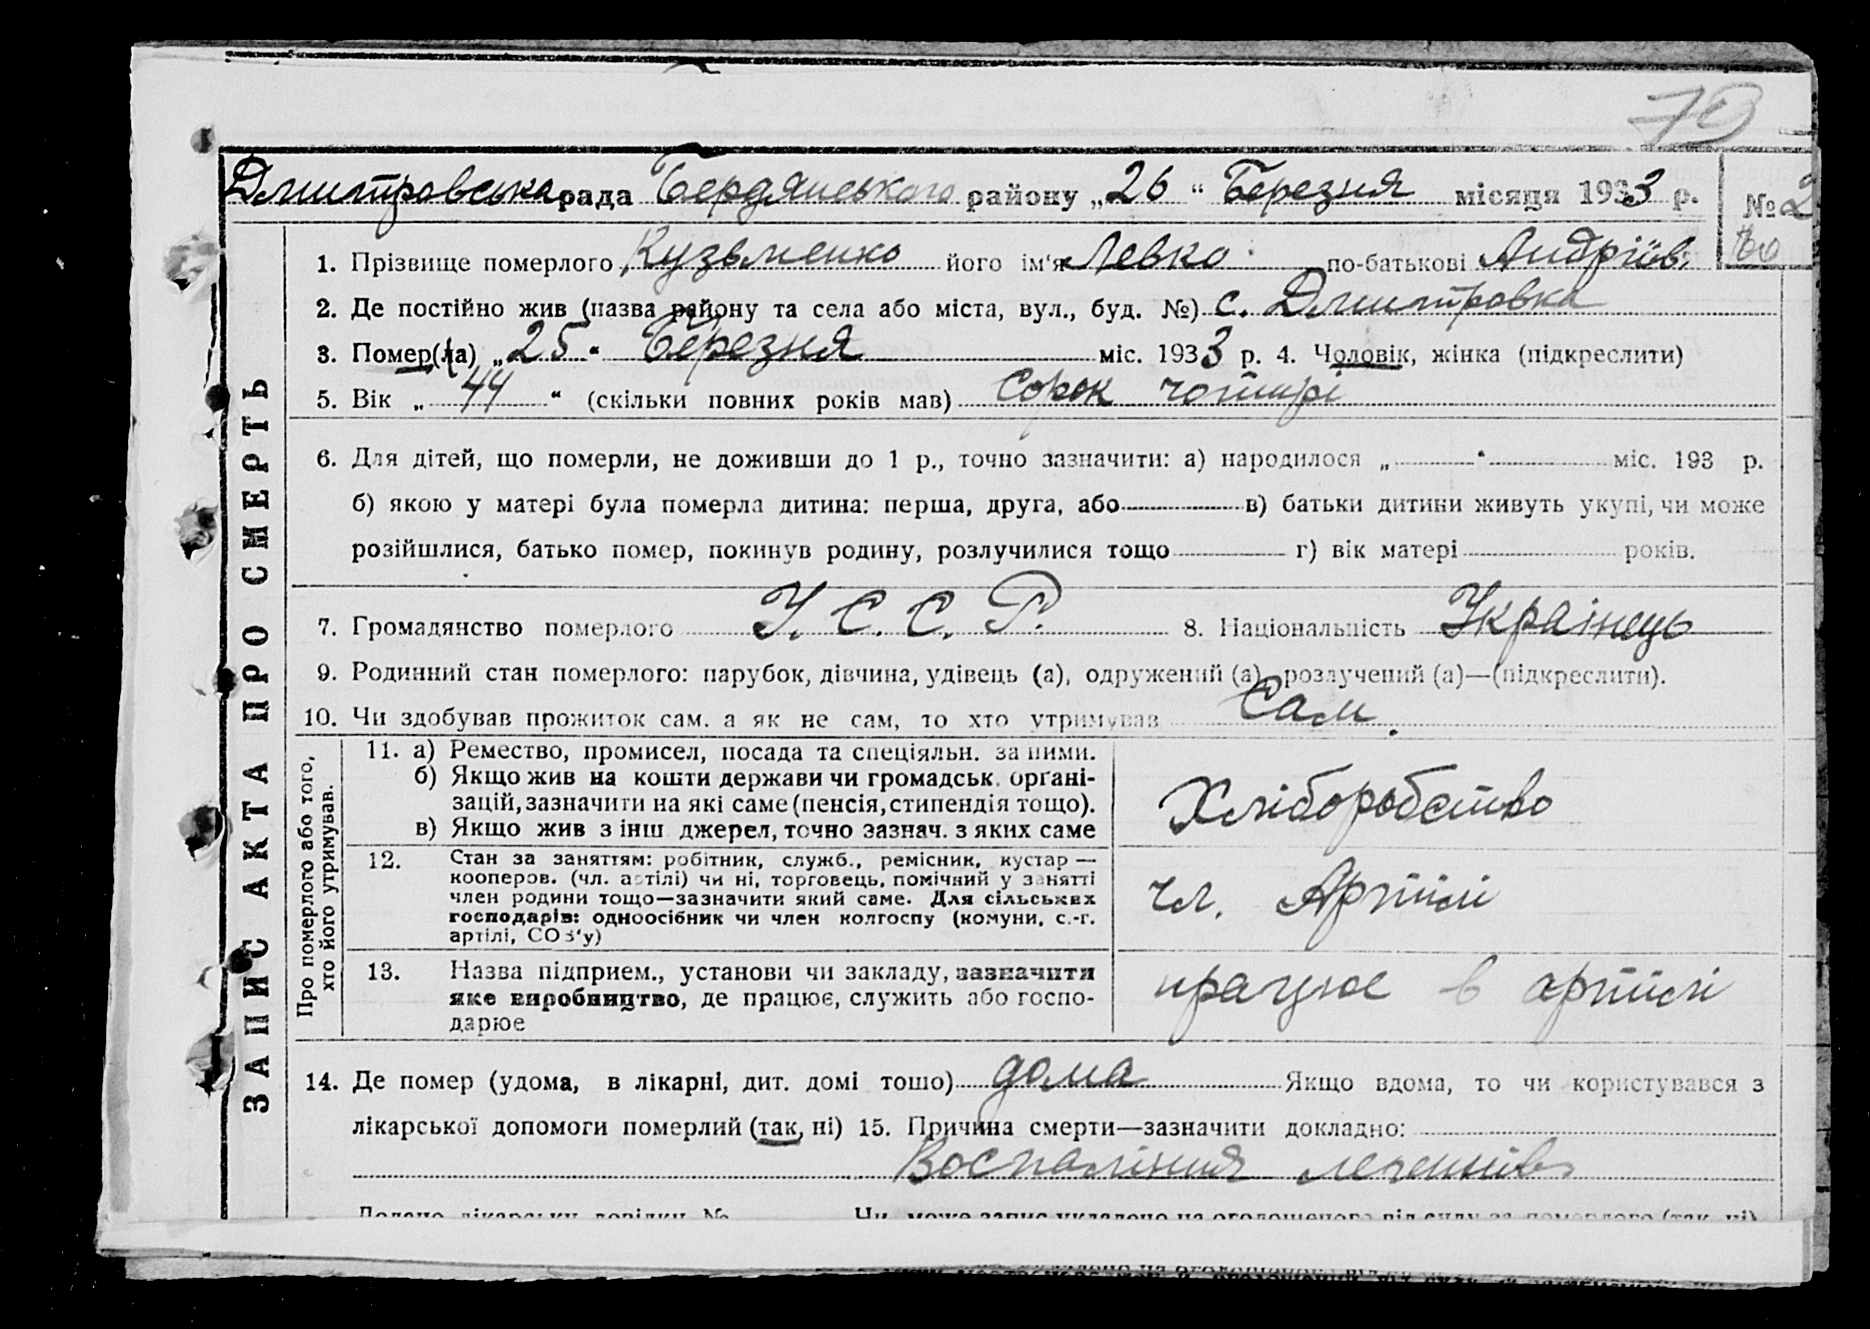 79
Дмитровська рада Бердянського району „26“ Березня місяця 1933 р. № 2
1. Прізвище померлого Кузьменко його ім'я Левко по-батькові Андріїв.
2. Де постійно жив (назва району та села або міста, вул., буд. №) с. Дмитровка
3. Помер(ла) „25“ Березня міс. 1933 р. 4. Чоловік, жінка (підкреслити)
5. Вік „44“ (скільки повних років мав) Сорок чотирі
6. Для дітей, що померли, не доживши до 1 р., точно зазначити: а) народилося „ “ міс. 193 р.
б) якою у матері була померла дитина: перша, друга, або в) батьки дитини живуть укупі, чи може
розійшлися, батько помер, покинув родину, розлучилися тощо г) вік матері років.
7. Громадянство померлого У. С. С. Р. 8. Національність Українець
9. Родинний стан померлого: парубок, дівчина, удівець (а), одружений (а), розлучений (а)—(підкреслити).
10. Чи здобував прожиток сам, а як не сам, то хто утримував Сам.
ЗАПИС АКТА ПРО СМЕРТЬ
Про померлого або того,
хто його утримував.
11. а) Ремество, промисел, посада та спеціяльн. за ними.
б) Якщо жив на кошти держави чи громадськ. органі-
зацій, зазначити на які саме (пенсія, стипендія тощо).
в) Якщо жив з інш джерел, точно зазнач. з яких саме
Хліборобство
12. Стан за заняттям: робітник, служб., ремісник, кустар —
кооперов. (чл. артілі) чи ні, торговець, помічний у занятті
член родини тощо—зазначити який саме. Для сільських
господарів: одноосібник чи член колгоспу (комуни, с.-г.
артілі, СОЗ'у)
чл. Артілі
13. Назва підприєм., установи чи закладу, зазначити
яке виробництво, де працює, служить або госпо-
дарює
працює в артілі
14. Де помер (удома, в лікарні, дит. домі тощо) дома Якщо вдома, то чи користувався з
лікарської допомоги померлий (так, ні) 15. Причина смерти—зазначити докладно:
Воспаління легенів
Додано лікарську довідку № Чи може запис укладено на оголошеного від суду за померлого (так, ні)